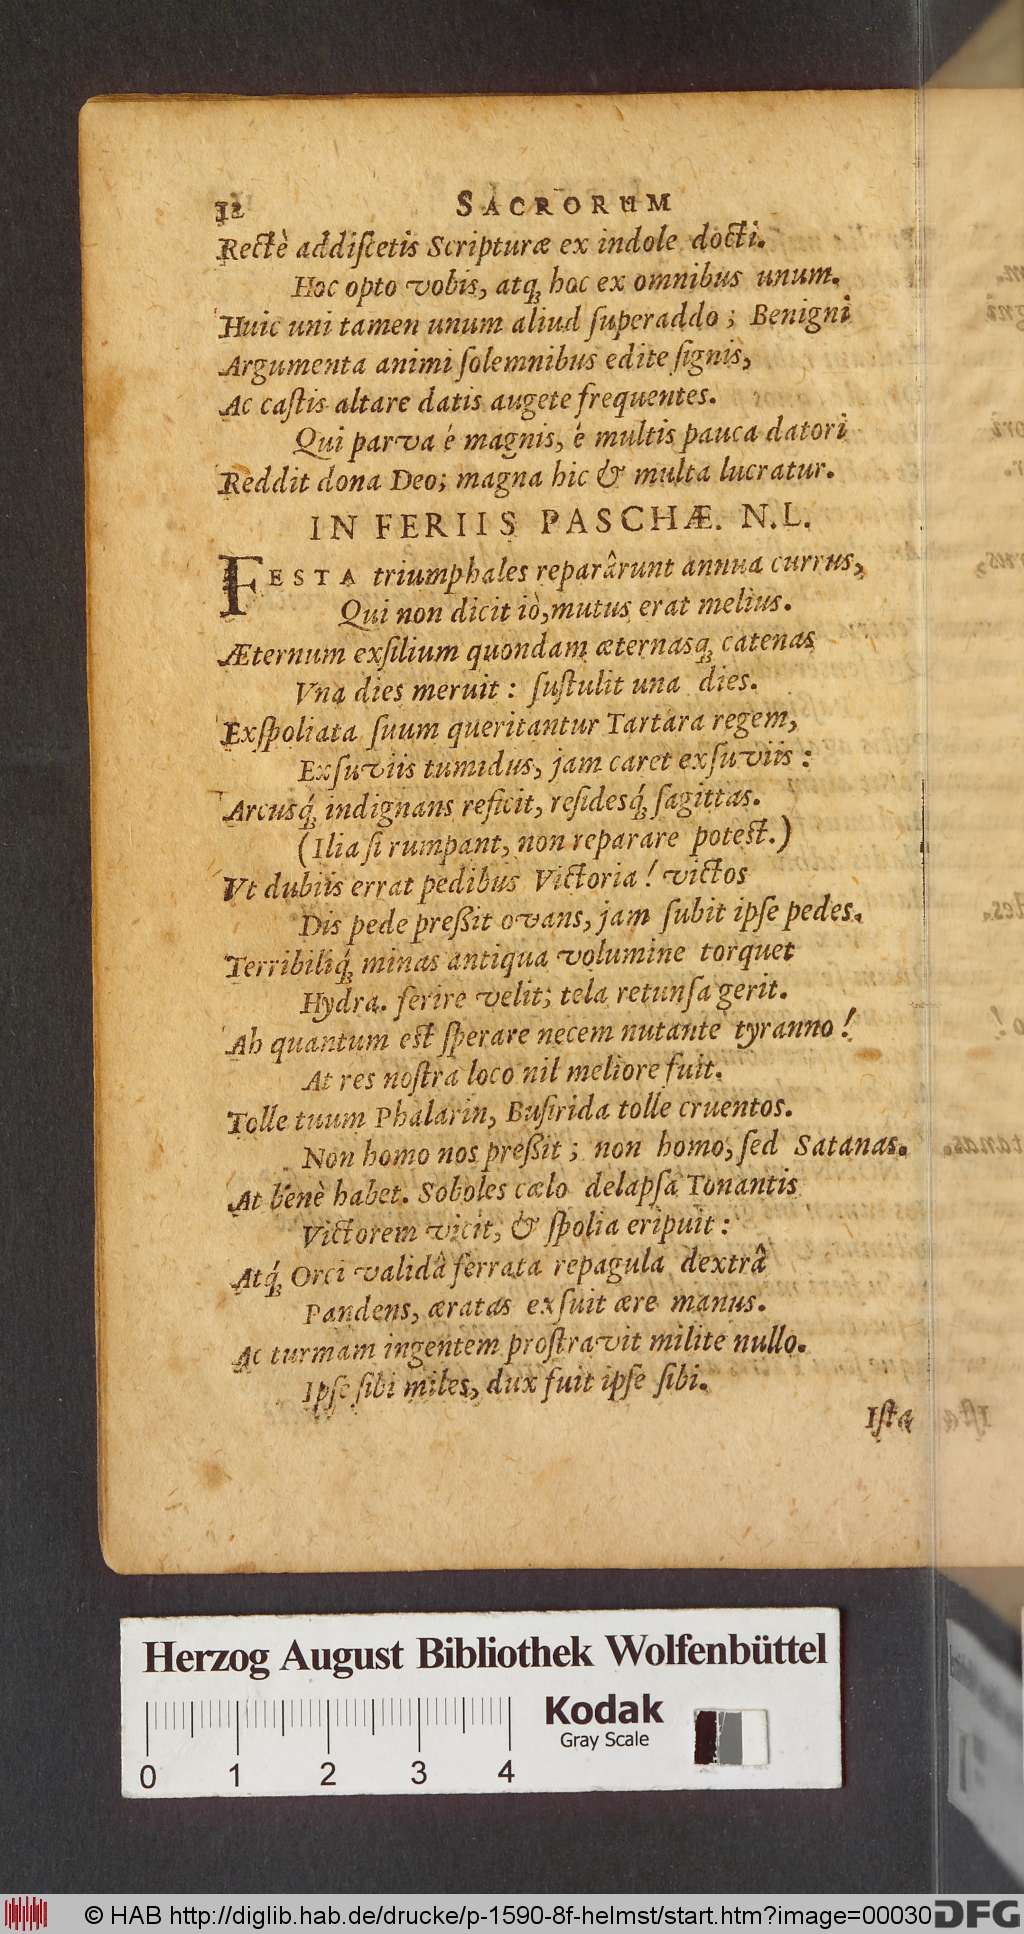 12 SACRORUM
Rectè addiſcetis Scripturæ ex indole docti.
Hoc opto vobis, atq; hoc ex omnibus unum.
Huic uni tamen unum aliud ſuperaddo; Benigni
Argumenta animi ſolemnibus edite ſignis,
Ac caſtis altare datis augete frequentes.
Qui parva é magnis, é multis pauca datori
Reddit dona Deo; magna hic & multa lucratur.
IN FERIIS PASCHÆ. N.L.
FESTA triumphales reparârunt annua currus,
Qui non dicit iò, mutus erat melius.
Æternum exſilium quondam æternasq; catenas
Vna dies meruit: ſuſtulit una dies.
Exſpoliata ſuum queritantur Tartara regem,
Exſuviis tumidus, jam caret exſuviis:
Arcusq́; indignans reficit, reſidesq́; ſagittas.
(Ilia ſi rumpant, non reparare poteſt.)
Vt dubiis errat pedibus Victoria! victos
Dis pede preßit ovans, jam ſubit ipſe pedes.
Terribiliq́; minas antiqua volumine torquet
Hydra. ferire velit; tela retunſa gerit.
Ah quantum eſt ſperare necem nutante tyranno!
At res noſtra loco nil meliore fuit.
Tolle tuum Phalarin, Buſirida tolle cruentos.
Non homo nos preßit; non homo, ſed Satanas.
At benè habet. Soboles cælo delapſa Tonantis
Victorem vicit, & ſpolia eripuit:
Atq́; Orci validâ ferrata repagula dextrâ
Pandens, æratas exſuit ære manus.
Ac turmam ingentem proſtravit milite nullo.
Ipſe ſibi miles, dux fuit ipſe ſibi.
Iſta
Herzog August Bibliothek Wolfenbüttel
Kodak
Gray Scale
0 1 2 3 4
© HAB http://diglib.hab.de/drucke/p-1590-8f-helmst/start.htm?image=00030
DFG